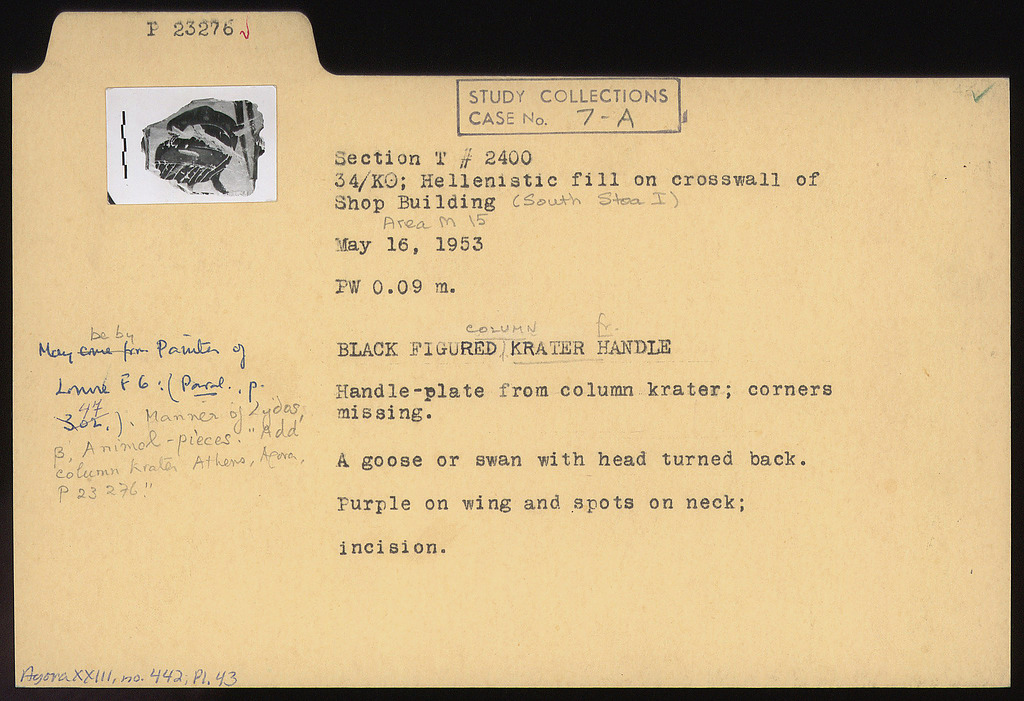 P 23276
STUDY COLLECTIONS
CASE No. 7-A
Section T # 2400
34/KΘ; Hellenistic fill on crosswall of
Shop Building (South Stoa I)
Area M 15
May 16, 1953
PW 0.09 m.
COLUMN fr.
BLACK FIGURED, KRATER HANDLE
Handle-plate from column krater; corners
missing.
A goose or swan with head turned back.
Purple on wing and spots on neck;
incision.
be by
May come from Painter of
Louvre F 6: (Paral., p.
47
302.). Manner of Lydos,
β, Animal-pieces. "Add
column krater Athens, Agora,
P 23 276."
Agora XXIII, no. 442, Pl. 43